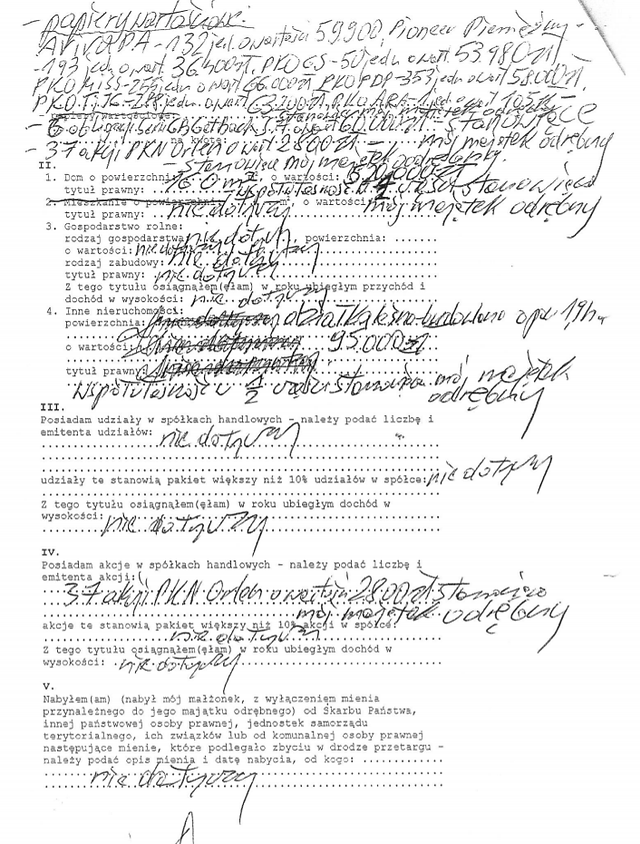 - papiery wartościowe:
AVIVA PA - 132 jed. o wartości 59.900, Pioneer Pieniężny -
- 193 jedn o wart. 36.400zł, PKO GS - 50 jedn o wart. 53.980zł
PKO MISS - 255 jedn o wart 66.000zł PKO PDP - 353 jedn o wart 58.000zł,
papiery wartościowe:
- 6 obligacji Serii GetBack S.A o wart 60.000zł - stanowiące
na kwotę:
- 37 akcji PKN Orlen o wart 2800zł - mój majątek odrębny
stanowią mój majątek odrębny.
II.
1. Dom o powierzchni: 160 m², o wartości:
tytuł prawny: współwłasność stanowiąca
2. Mieszkanie o powierzchni m², o wartości: mój majątek odrębny
tytuł prawny: nie dotyczy
3. Gospodarstwo rolne:
rodzaj gospodarstwa: nie dotyczy, powierzchnia: .......
o wartości: nie dotyczy
rodzaj zabudowy: nie dotyczy
tytuł prawny: nie dotyczy
Z tego tytułu osiągnąłem(ęłam) w roku ubiegłym przychód i
dochód w wysokości: nie dotyczy
4. Inne nieruchomości:
powierzchnia: działka leśno-budowlana o pow 1,9h
o wartości: 95.000zł
tytuł prawny:
Współwłasność w 1/2 mój majątek
odrębny
III.
Posiadam udziały w spółkach handlowych - należy podać liczbę i
emitenta udziałów: nie dotyczy
udziały te stanowią pakiet większy niż 10% udziałów w spółce: nie dotyczy
Z tego tytułu osiągnąłem(ęłam) w roku ubiegłym dochód w
wysokości: nie dotyczy
IV.
Posiadam akcje w spółkach handlowych - należy podać liczbę i
emitenta akcji:
37 akcji PKN Orlen o wartości 2800zł stanowiące
mój majątek odrębny
akcje te stanowią pakiet większy niż 10% akcji w spółce:
nie dotyczy
Z tego tytułu osiągnąłem(ęłam) w roku ubiegłym dochód w
wysokości: nie dotyczy
V.
Nabyłem(am) (nabył mój małżonek, z wyłączeniem mienia
przynależnego do jego majątku odrębnego) od Skarbu Państwa,
innej państwowej osoby prawnej, jednostek samorządu
terytorialnego, ich związków lub od komunalnej osoby prawnej
następujące mienie, które podlegało zbyciu w drodze przetargu -
należy podać opis mienia i datę nabycia, od kogo: .............
nie dotyczy